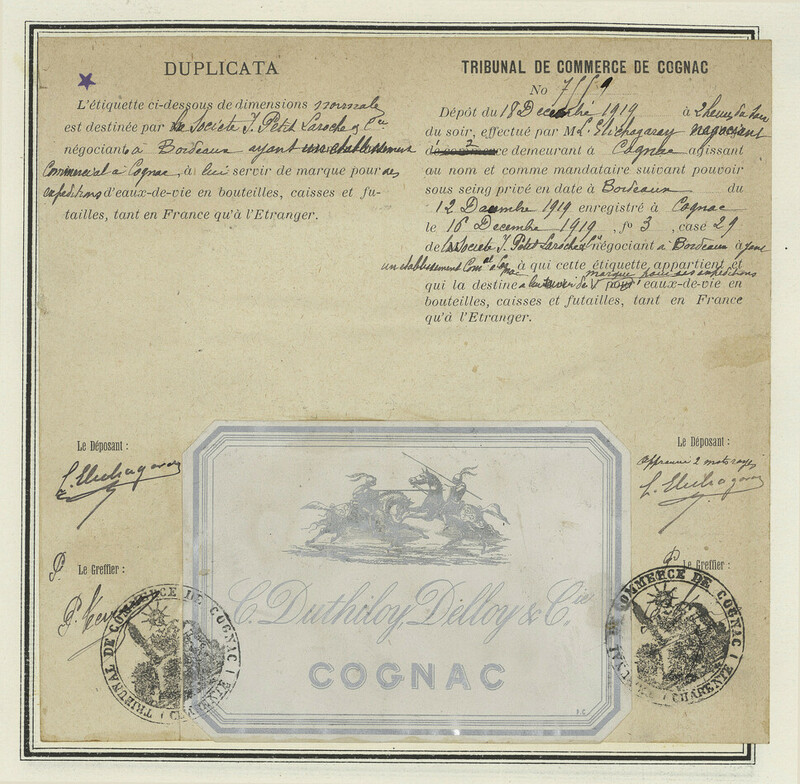 DUPLICATA
L'étiquette ci-dessous de dimensions normale
est destinée par la Societe J. Petit Laroche & Cie
négociant à Bordeaux ayant un etablissement
Commercial à Cognac, à lui servir de marque pour ses
expeditions d'eaux-de-vie en bouteilles, caisses et fu-
tailles, tant en France qu'à l'Etranger.
TRIBUNAL DE COMMERCE DE COGNAC
No
Dépôt du 18 Decembre 1919 à 2 heures du soir
du soir, effectué par M L. Etchegaray negociant
demeurant à Cognac agissant
au nom et comme mandataire suivant pouvoir
sous seing privé en date à Bordeaux du
12 Decembre 1919 enregistré à Cognac
le 16 Decembre 1919, fo 3, case 29
de la Societe J. Petit Laroche & négociant à Bordeaux ayant
un etablissement Comal à Cognac à qui cette étiquette appartient et
qui la destine à lui servir de marque pour ses expeditions d'eaux-de-vie en
bouteilles, caisses et futailles, tant en France
qu'à l'Etranger.
Le Déposant :
L. Etchegaray
Le Greffier :
Le Déposant :
Approuvé 2 mots rayés
L. Etchegaray
Le Greffier :
C. Duthcloy, Delloy & Cie
COGNAC
TRIBUNAL DE COMMERCE DE COGNAC
CHARENTE
TRIBUNAL DE COMMERCE DE COGNAC
CHARENTE